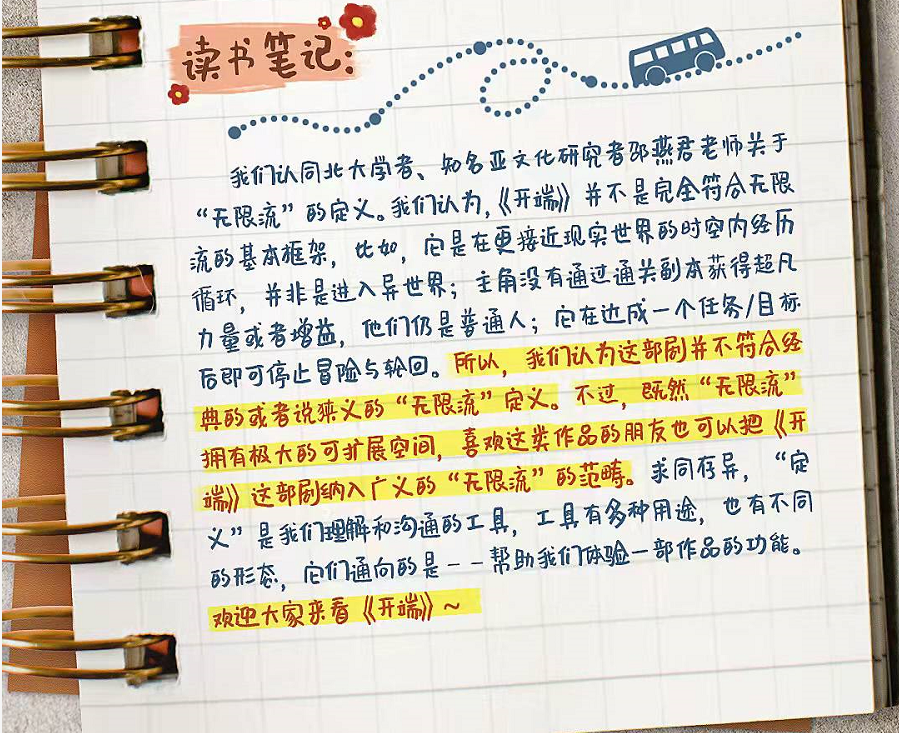 读书笔记:
我们认同北大学者、知名亚文化研究者邵燕君老师关于
“无限流”的定义。我们认为,《开端》并不是完全符合无限
流的基本框架，比如，它是在更接近现实世界的时空内经历
循环，并非是进入异世界；主角没有通过通关副本获得超凡
力量或者增益，他们仍是普通人；它在达成一个任务/目标
后即可停止冒险与轮回。所以，我们认为这部剧并不符合经
典的或者说狭义的“无限流”定义。不过，既然“无限流”
拥有极大的可扩展空间，喜欢这类作品的朋友也可以把《开
端》这部剧纳入广义的“无限流”的范畴。求同存异，“定
义”是我们理解和沟通的工具，工具有多种用途，也有不同
的形态，它们通向的是--帮助我们体验一部作品的功能。
欢迎大家来看《开端》~